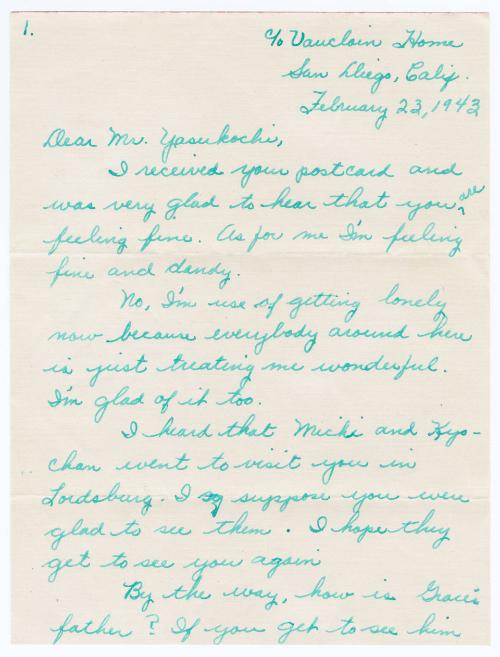 1.
c/o Vauclain Home
San Diego, Calif.
February 23, 1943
Dear Mr. Yasukochi,
I received your postcard and
was very glad to hear that you are
feeling fine. As for me I'm feeling
fine and dandy.
No, I'm use of getting lonely
now because everybody around here
is just treating me wonderful.
I'm glad of it too.
I heard that Micki and Kyo-
chan went to visit you in
Lordsburg. I suppose you were
glad to see them. I hope they
get to see you again
By the way, how is Grace's
father? If you get to see him